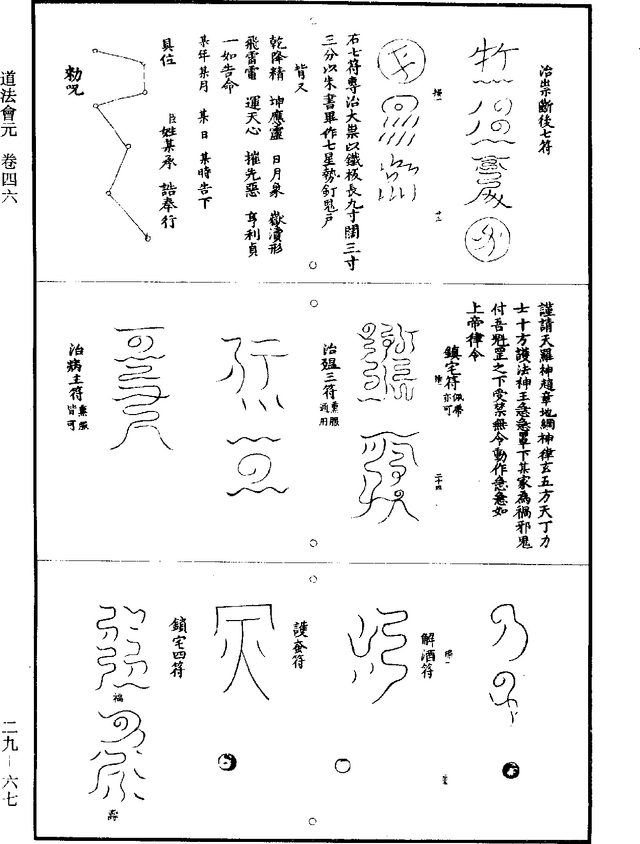 道法會元　卷四六
二九－六七
治祟斷後七符
右七符專治大祟以鐵板長九寸闊三寸
三分以朱書畢作七星勢釘鬼戶
背又
乾降精　坤應靈　日月象　嶽瀆形
飛雷電　運天心　摧先惡　亨利貞
一如告命
某年某月　某日　某時告下
具位　臣姓某承　誥奉行
勑咒
謹請天羅神趙章地網神律玄五方天丁力
士十方護法神王急急罩下某家為禍邪鬼
付吾魁罡之下受禁無令動作急急如
上帝律令
鎮宅符佩帶亦可
治瘟三符熏服通用
治病主符熏服皆可
解酒符
護蚕符
鎮宅四符
禍
壽